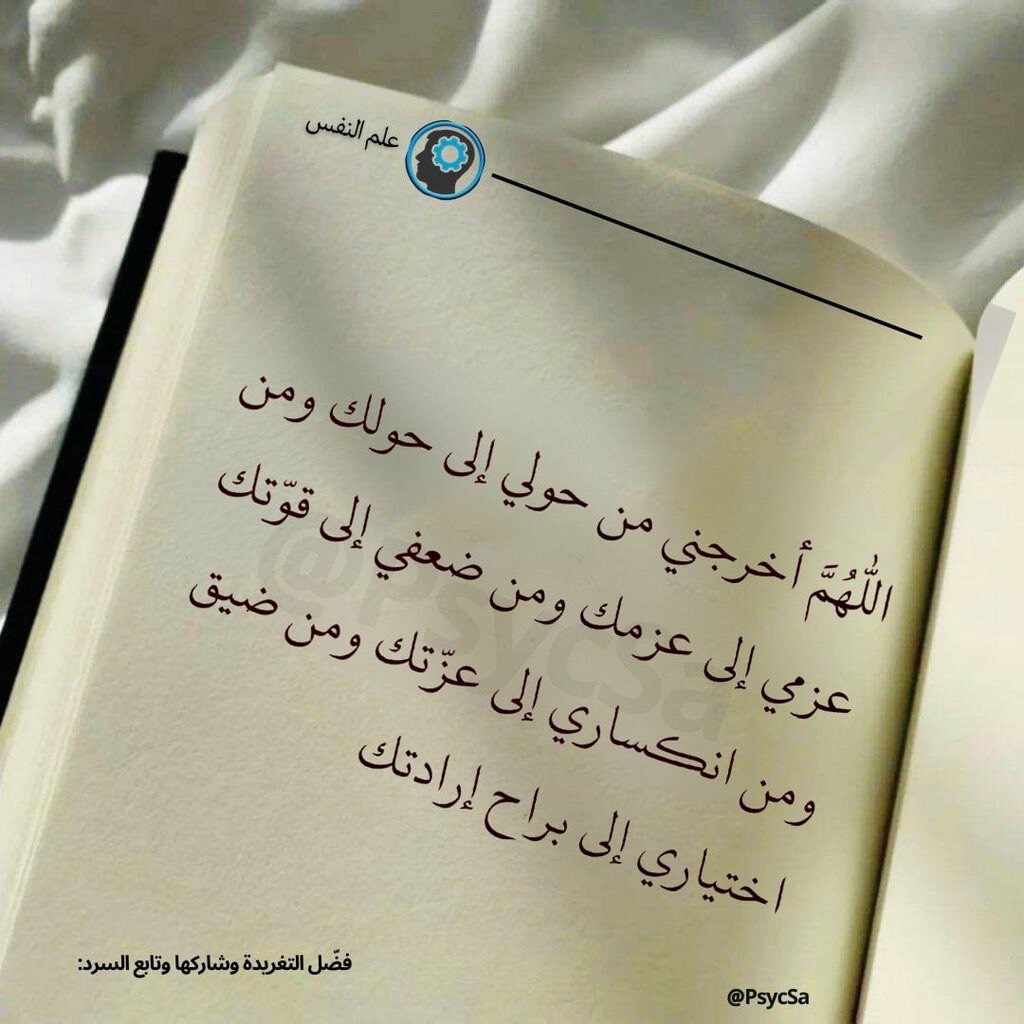 علم النفس
اللَّهُمَّ أخرجني من حولي إلى حولك ومن
عزمي إلى عزمك ومن ضعفي إلى قوّتك
ومن انكساري إلى عزّتك ومن ضيق
اختياري إلى براح إرادتك
@PsycSa
فضّل التغريدة وشاركها وتابع السرد:
@PsycSa